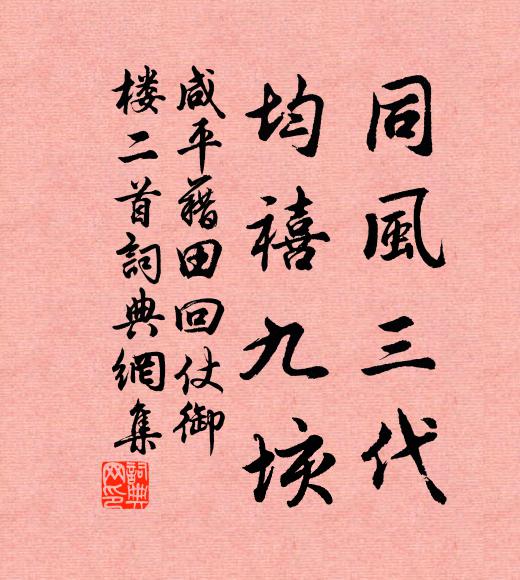 同風三代
均禧九垓
咸平藉田回仗御
楼二首詞典網集
詞典网印